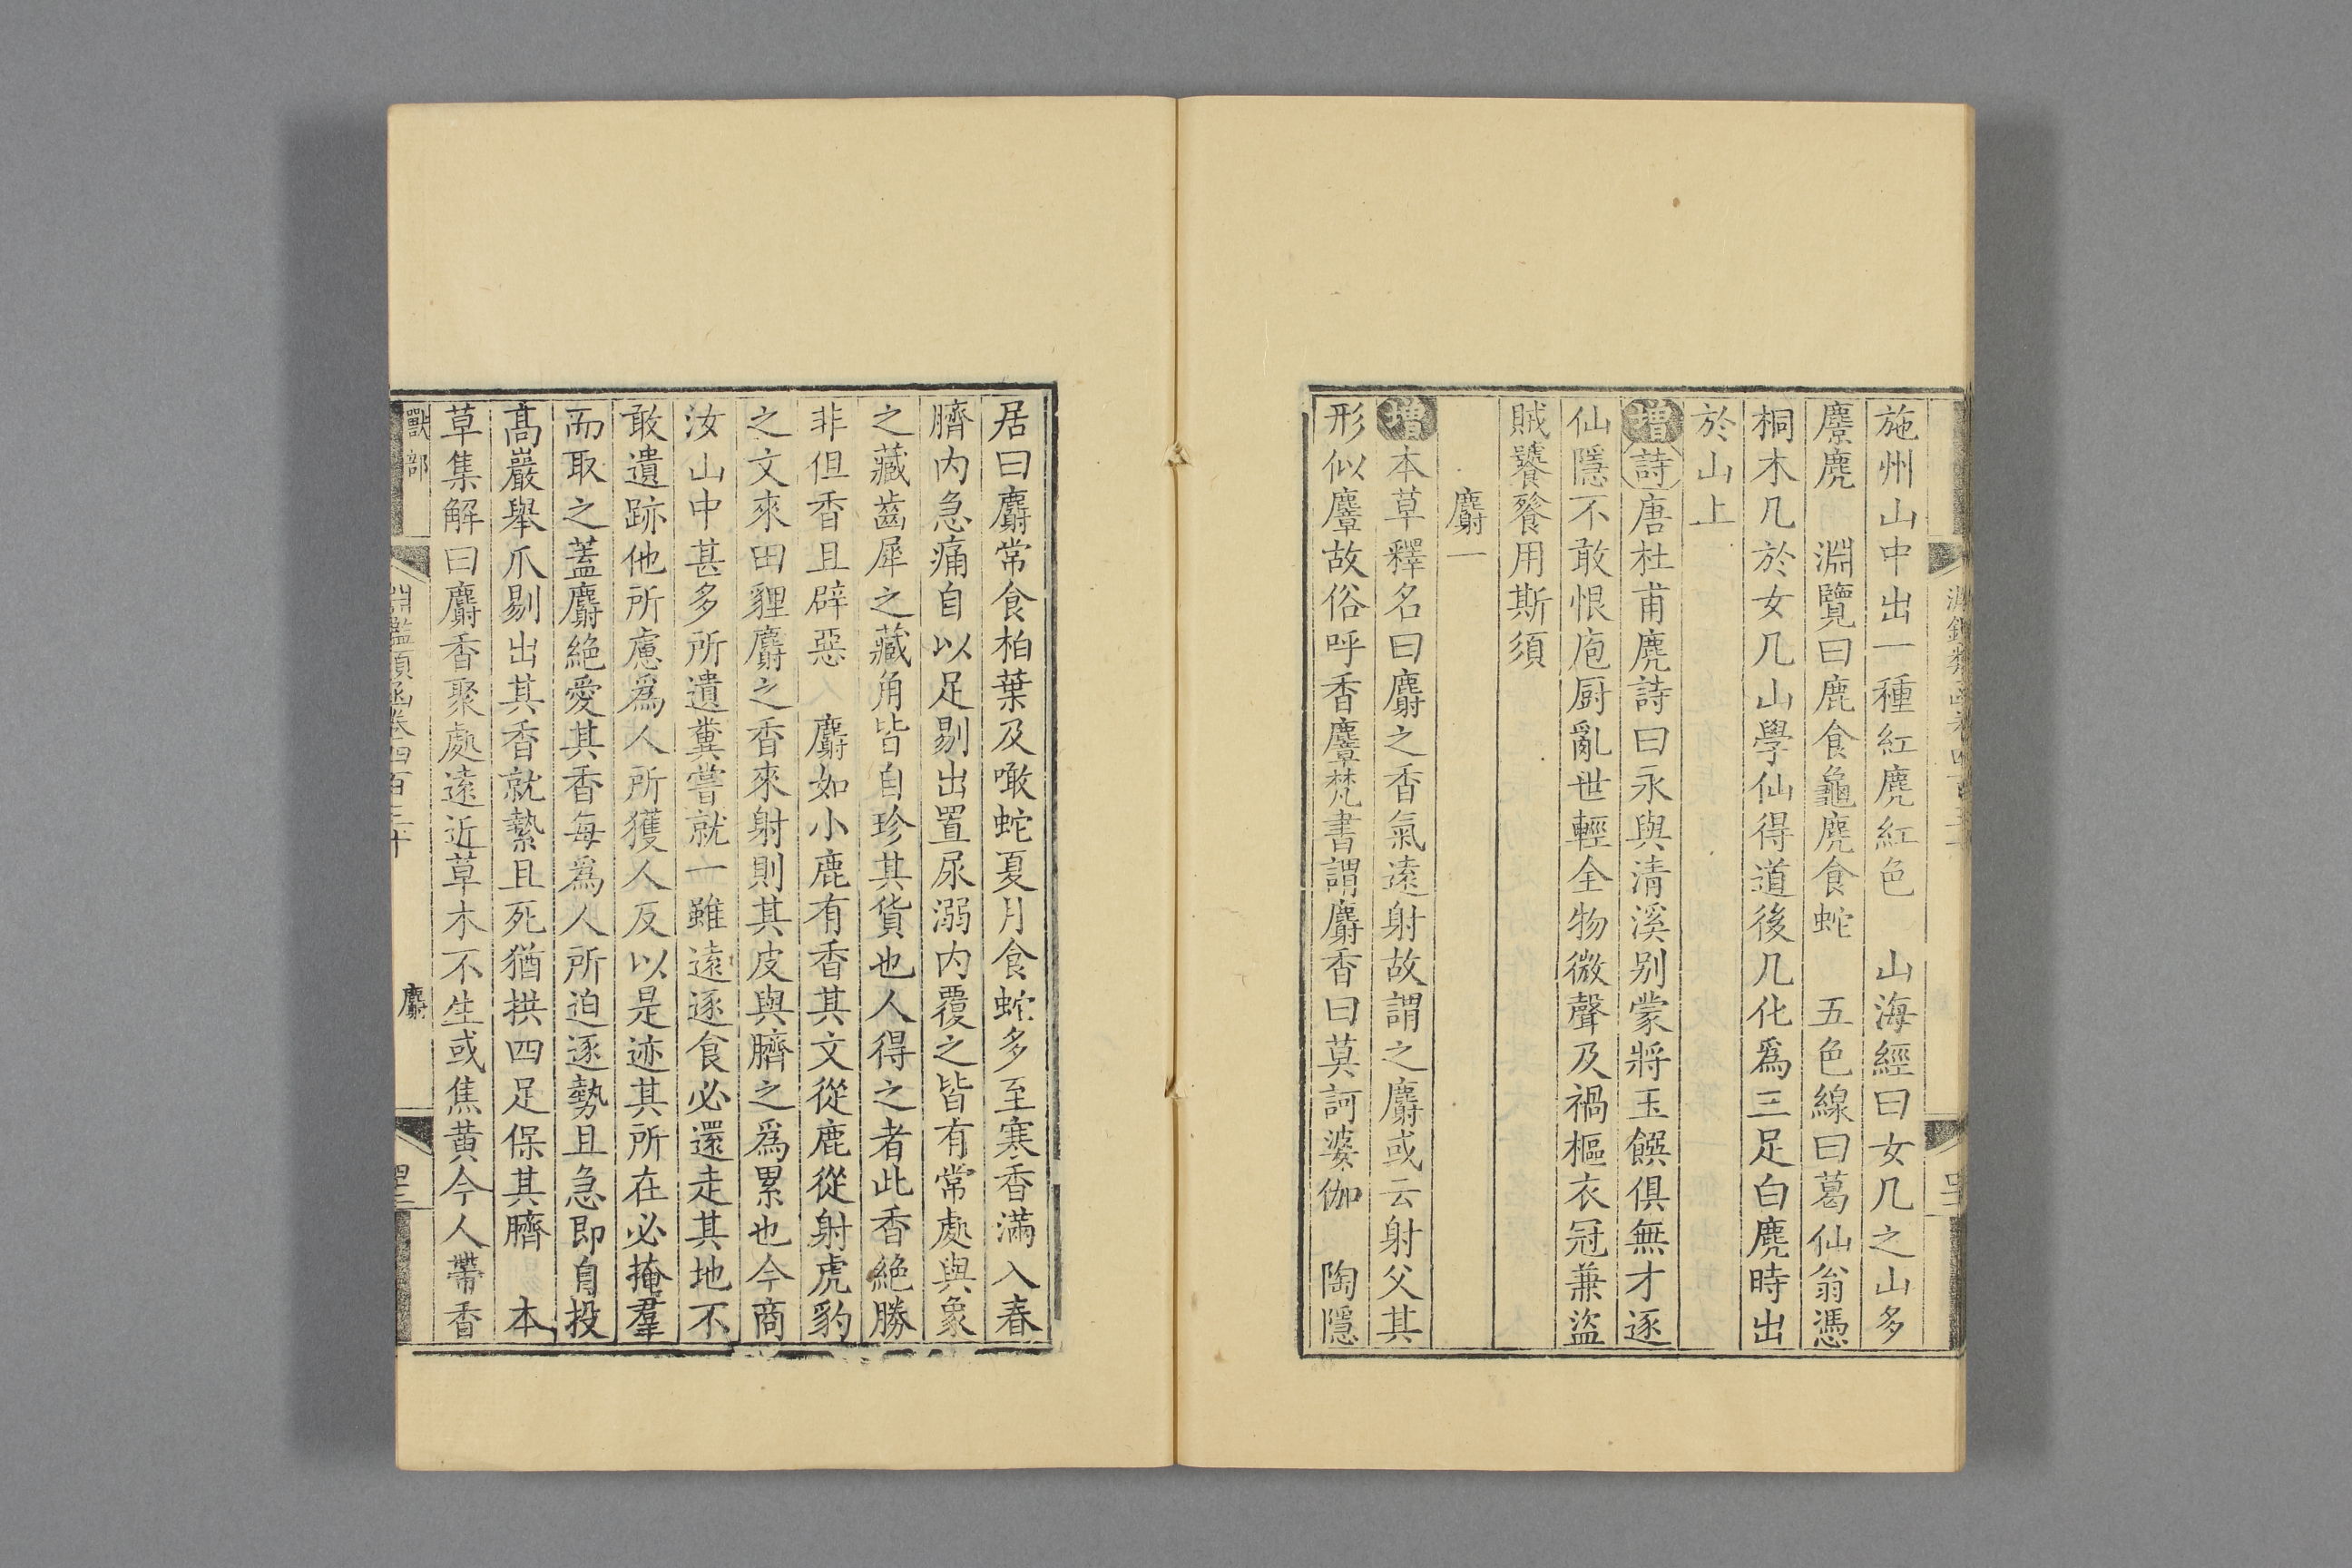 施州山中出一種紅麂紅色　山海經曰女几之山多
麖麂　淵覽曰鹿食龜麂食蛇　五色線曰葛仙翁憑
桐木几於女几山學仙得道後几化爲三足白麂時出
於山上
增詩唐杜甫麂詩曰永與清溪别蒙將玉饌俱無才逐
仙隱不敢恨庖厨亂世輕全物微聲及禍樞衣冠兼盜
賊饕餮用斯須
麝一
增本草釋名曰麝之香氣遠射故謂之麝或云射父其
形似麞故俗呼香麞梵書謂麝香曰莫訶婆伽　陶隱
居曰麝常食柏葉及噉蛇夏月食蛇多至寒香滿入春
臍内急痛自以足剔出置尿溺内覆之皆有常處與象
之藏齒犀之藏角皆自珍其貨也人得之者此香絶勝
非但香且辟惡　麝如小鹿有香其文從鹿從射虎豹
之文來田貍麝之香來射則其皮與臍之爲累也今商
汝山中甚多所遺糞嘗就一雖遠逐食必還走其地不
敢遺跡他所慮爲人所獲人反以是迹其所在必掩羣
而取之蓋麝絶愛其香每爲人所迫逐勢且急即自投
高巖舉爪剔出其香就縶且死猶拱四足保其臍　本
草集解曰麝香聚處遠近草木不生或焦黄今人帶香
獸部
麝